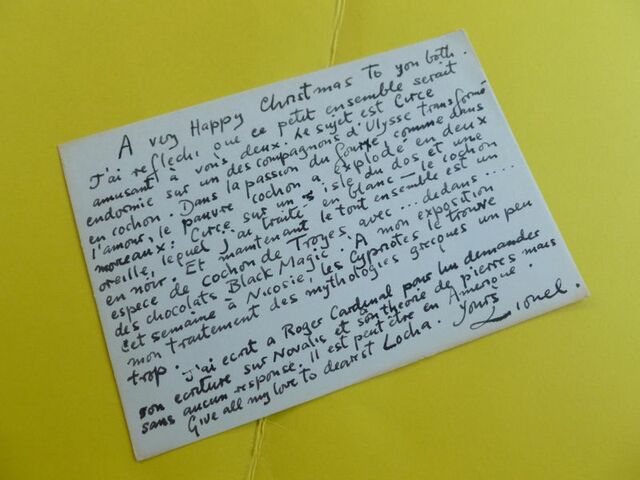 A very Happy Christmas to you both.
J'ai reflechi que ce petit ensemble serait
amusant à vous deux. Le sujet est Circe
endormie sur un des compagnons d'Ulysse transformé
en cochon. Dans la passion du four, comme dans
l'amour, le pauvre cochon a explodé en deux
morceaux: Circe sur un isle du dos et une
oreille, lequel j'ai traité en blanc – le cochon
en noir. Et maintenant le tout ensemble est un
espece de cochon de Troyes, avec ... dedans ....
des chocolats Black Magic. A mon exposition
cet semaine à Nicosie, les Cypriotes le trouve
mon traitement des mythologies grecques un peu
trop. J'ai ecrit a Roger Cardinal pour lui demander
son ecriture sur Novalis et son theorie de pierres mais
sans aucun response. Il est peut être en Amerique.
Give all my love to dearest Locha. Yours Lionel.